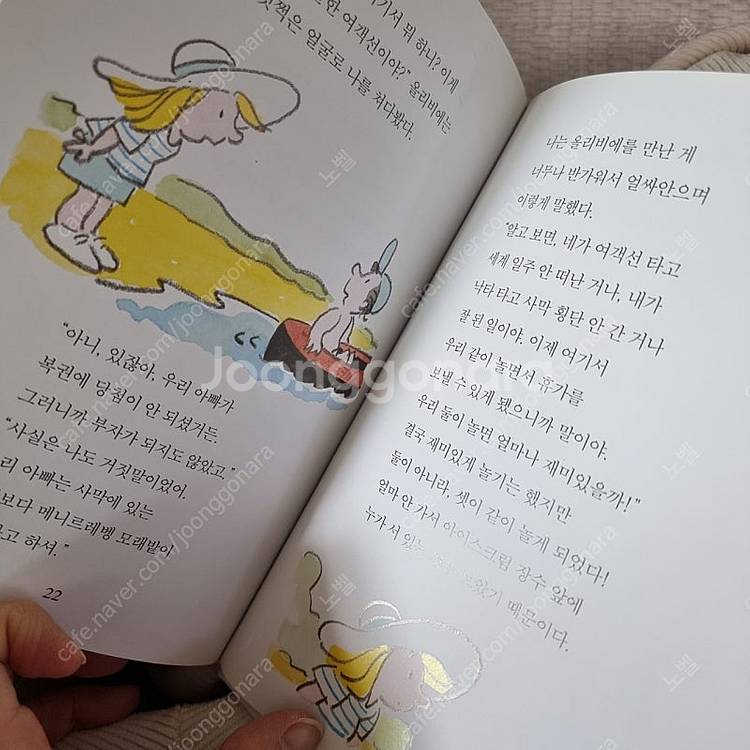 기서 뭐 하니? 이게
한 여객선이야?" 올리비에는
쩍은 얼굴로 나를 쳐다봤다.
"아니, 있잖아, 우리 아빠가
복권에 당첨이 안 되셨거든.
그러니까 부자가 되지도 않았고."
"사실은 나도 거짓말이었어.
리 아빠는 사막에 있는
보다 메니르레벵 모래밭이
고 하셔."
22
나는 올리비에를 만난 게
너무나 반가워서 얼싸안으며
이렇게 말했다.
"알고 보면, 네가 여객선 타고
세계 일주 안 떠난 거나, 내가
낙타 타고 사막 횡단 안 간 거나
잘 된 일이야. 이제 여기서
우리 같이 놀면서 휴가를
보낼 수 있게 됐으니까 말이야.
우리 둘이 놀면 얼마나 재미있을까!"
결국 재미있게 놀기는 했지만
둘이 아니라, 셋이 같이 놀게 되었다!
얼마 안 가서 아이스크림 장수 앞에
누가 서 있는 보았기 때문이다.
Joonggonara
cafe.naver.com/joonggonara
노벨